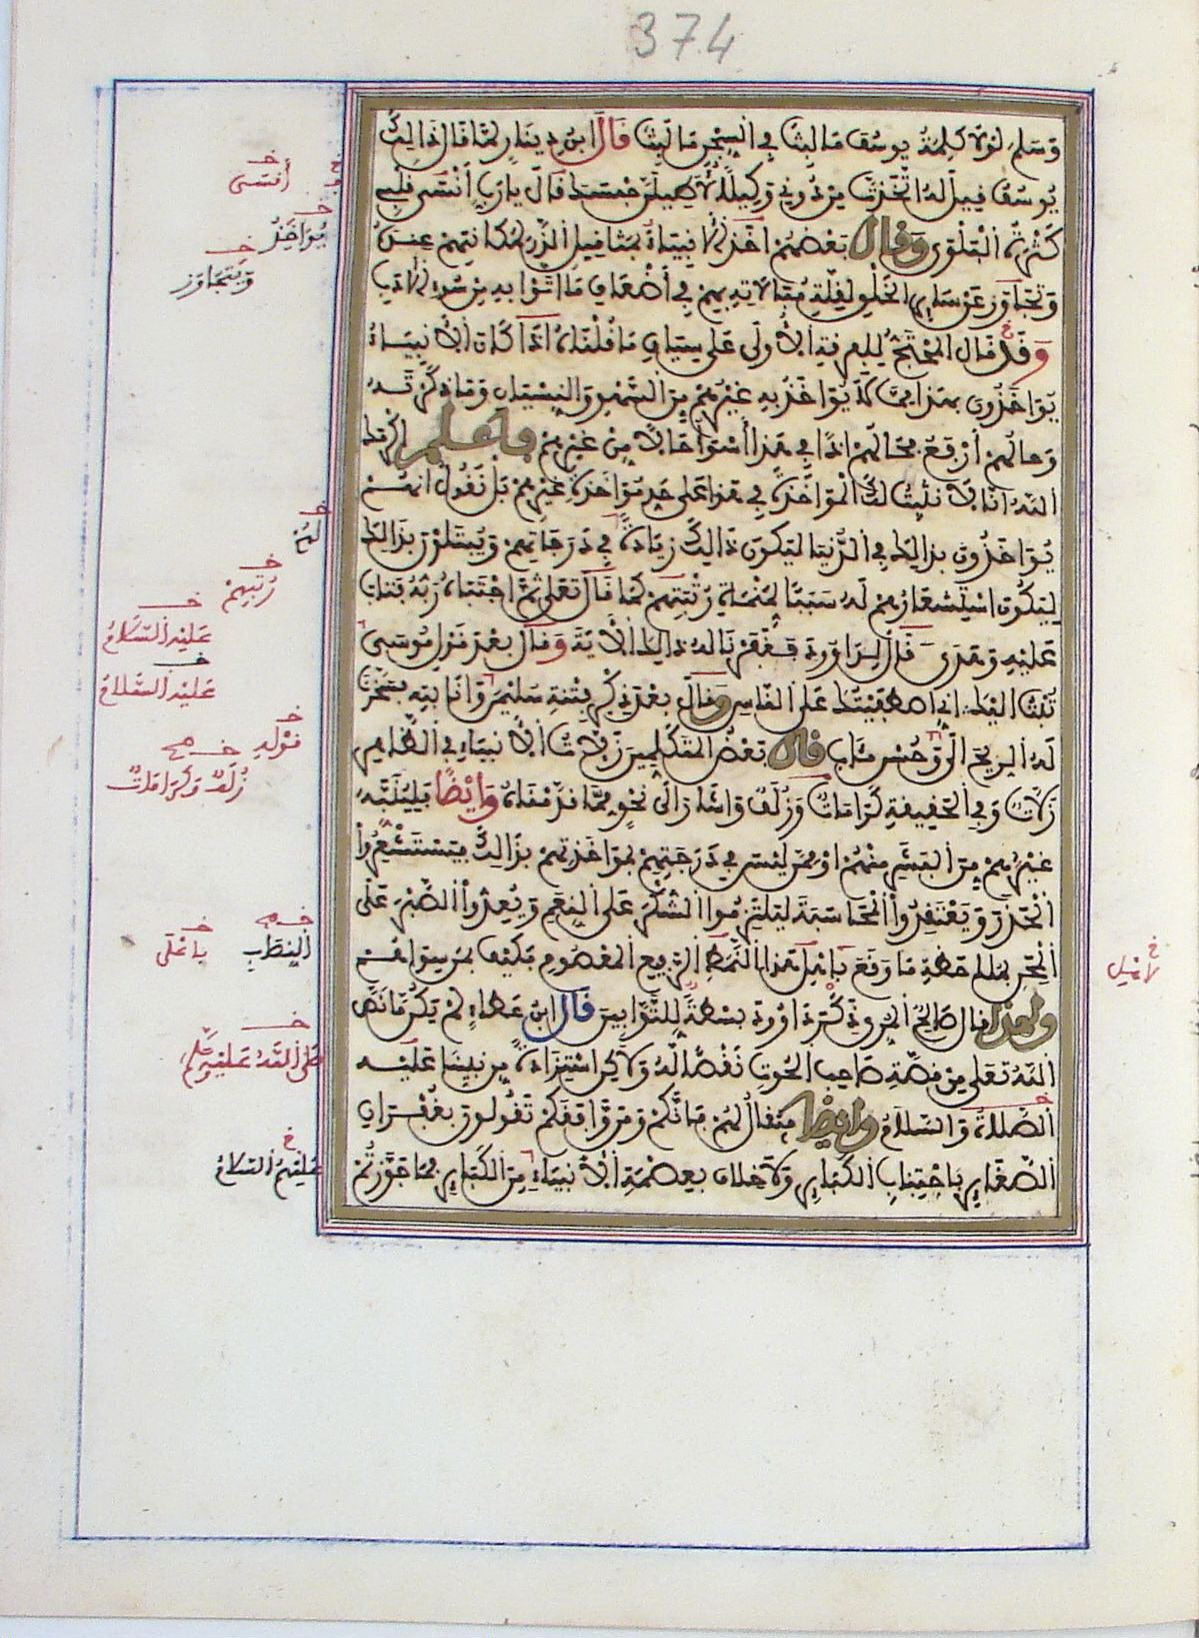 374
وسلم لولا كلمة يوسف ما لبث في السجن ما لبث قال ابن دينار لما قال ذالك
يوسف قيل له اتخذت من دوني وكيلا لأطيلن حبسك قال يا رب أنسى قلبي
كثرة البلوى وقال بعضهم أخذ الأنبياء بمثاقيل الذر لمكانتهم عنده
وتجاوز عن سائر الخلق لقلة مبالاته بهم في أضعاف ما اتوا به من سوء الأدب
وقد قال المحتج للفرقة الأولى على سياق ما قلناه اذا كان الأنبياء
يواخذون بهذا مما لا يواخذ به غيرهم من السهو والنسيان وما ذكرته
وحالهم أرفع فحالهم اذا في هذا أسوأ حالا من غيرهم فاعلم اكرمك
الله انا لا نثبت لك المواخذة في هذا على حد مواخذة غيرهم بل نقول انهم
يواخذون بذالك في الدنيا ليكون ذالك زيادة في درجاتهم ويبتلون بذالك
ليكون استشعارهم له سببا لمنماة رتبتهم كما قال تعلى ثم اجتباه ربه فتاب
عليه وهدى قال لداوود فغفرنا له ذالك الأية وقال بعد قول موسى
تبت اليك اني اصطفيتك على الناس وقال بعد ذكر فتنة سليمن وانابته فسخرنا
له الريح الى وحسن مئاب قال بعض المتكلمين زلات الأنبياء في الظاهر
زلات وفي الحقيقة كرامات وزلف واشار الى نحو مما قدمناه وايضا فلينبه
غيرهم من البشر منهم او ممن ليس في درجتهم بمواخذتهم بذالك فيستشعروا
الحذر ويعتقدوا المحاسبة ليلتزموا الشكر على النعم ويعدوا الصبر على
المحن بملاحظة ما وقع باهل هذا النمط الرفيع المعصوم فكيف بمن سواهم
ولهذا قال صالح المري ذكر داوود بسطة للتوابين قال ابن عطاء لم يكن ما نص
الله تعلى من قصة صاحب الحوت نقصا له ولاكن استزادة من نبينا عليه
الصلاة والسلام وايضا فيقال لهم فانكم ومن وافقكم تقولون بغفران
الصغاير باجتناب الكباير ولا خلاف بعصمة الأنبياء من الكباير فما جوزتم
خ أنسى
خ يواخذ
خ ويتجاوز
خ لهم
خ رتبهم
خ عليه السلام
خ عليه السلام
خ قوله
خ صح زلف وكرامات
خ صح النصاب
خ باعلى
خ لاهل
خ صلى الله عليه وسلم
خ عليهم السلام